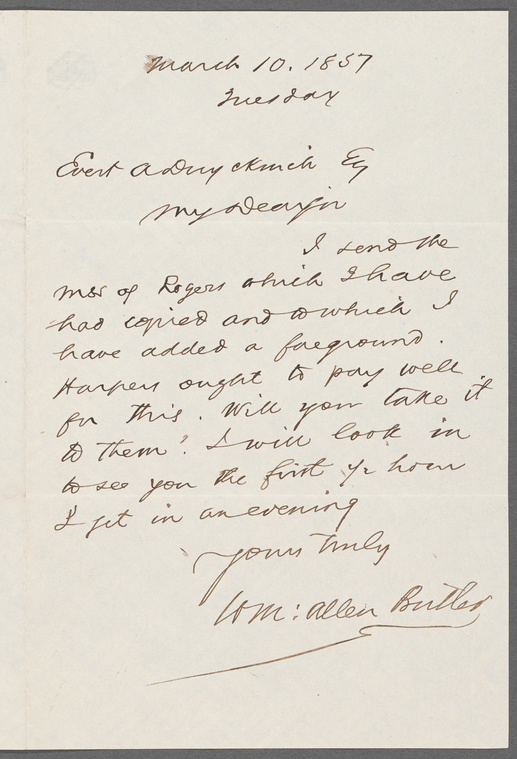 March 10. 1857
Tuesday
Evert A Duyckinck Esq
My Dear Sir
I send the
mss of Rogers which I have
had copied and to which I
have added a foreground.
Harpers ought to pay well
for this. Will you take it
to them? I will look in
to see you the first ½ hour
I get in an evening
Yours truly
Wm: Allen Butler